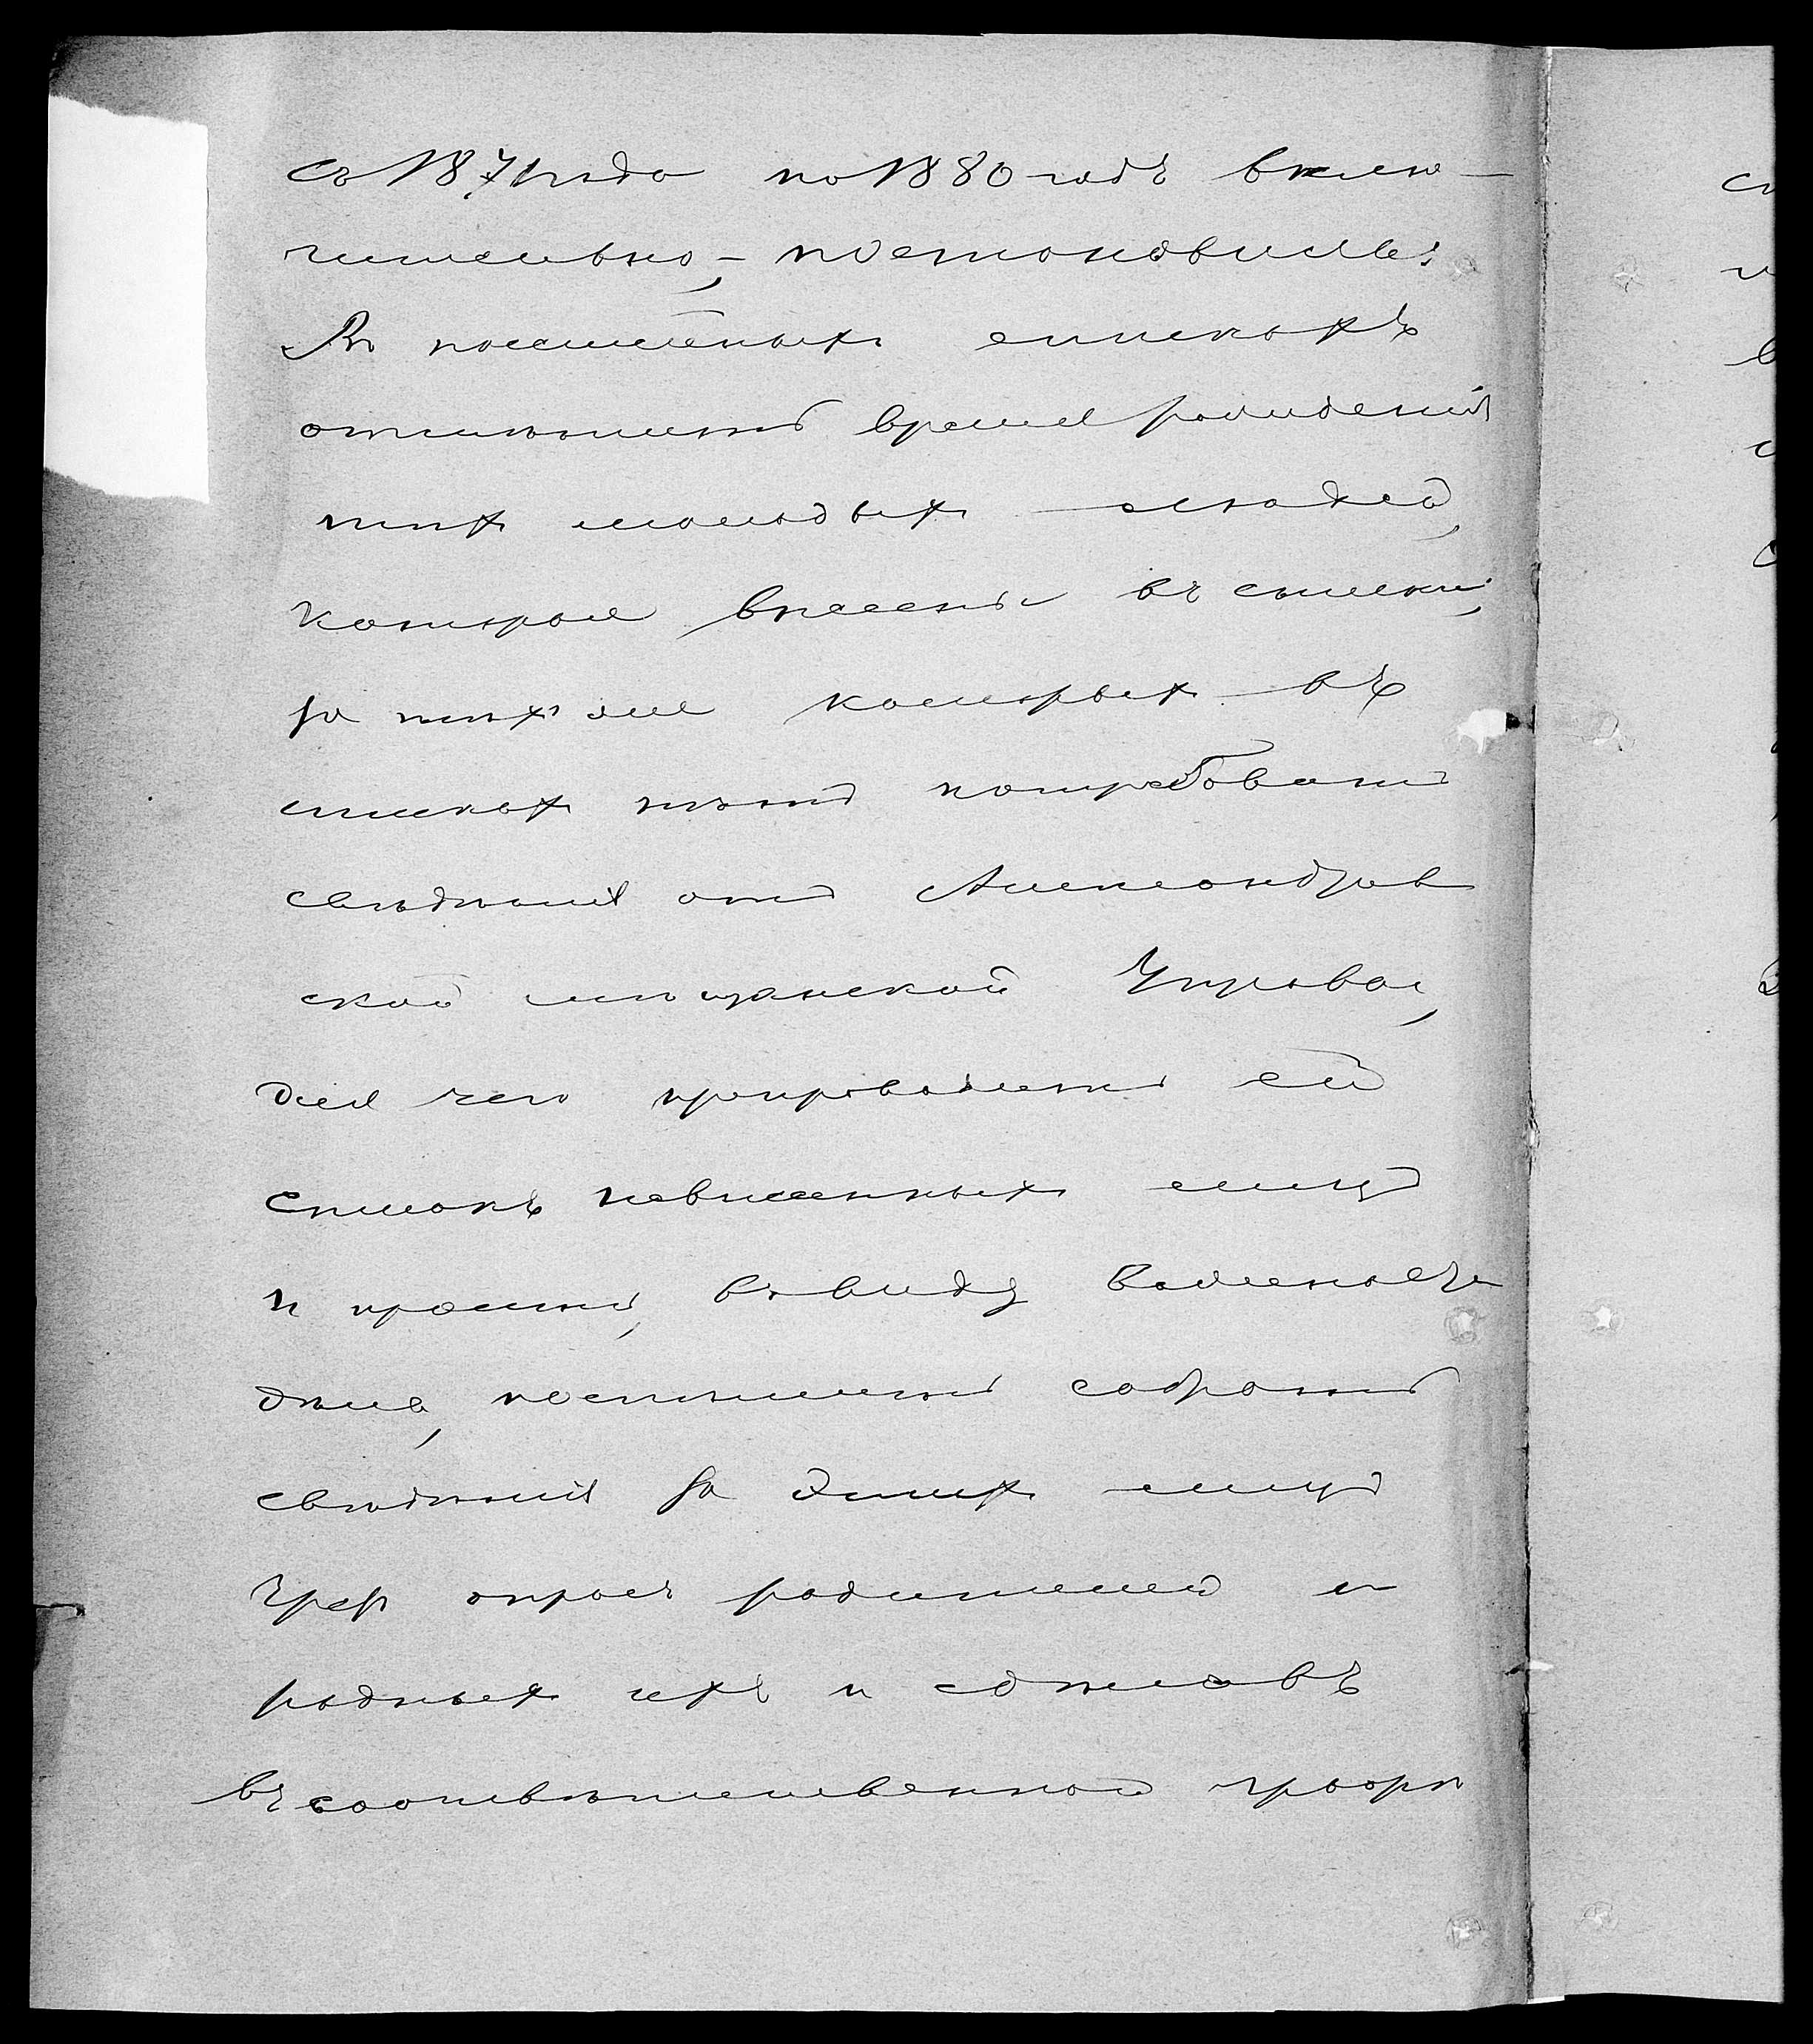 съ 1871 года по 1880 годъ вклю-
чительно, – постановилъ:
Въ посемейныхъ спискахъ
отмѣтить время рожденія
тѣхъ молодыхъ людей,
которые внесены въ списки,
за тѣхъ же которыхъ въ
спискахъ нѣтъ потребовать
свѣдѣнія отъ Александров
ской мѣщанской Управы,
для чего препроводить ей
списокъ невнесенныхъ лицъ
и просить, въ виду важности
дѣла, поспѣшить собрать
свѣдѣнія за этихъ лицъ
чрезъ опросъ родителей и
родныхъ ихъ и сдѣлавъ
въ соотвѣтственной графѣ